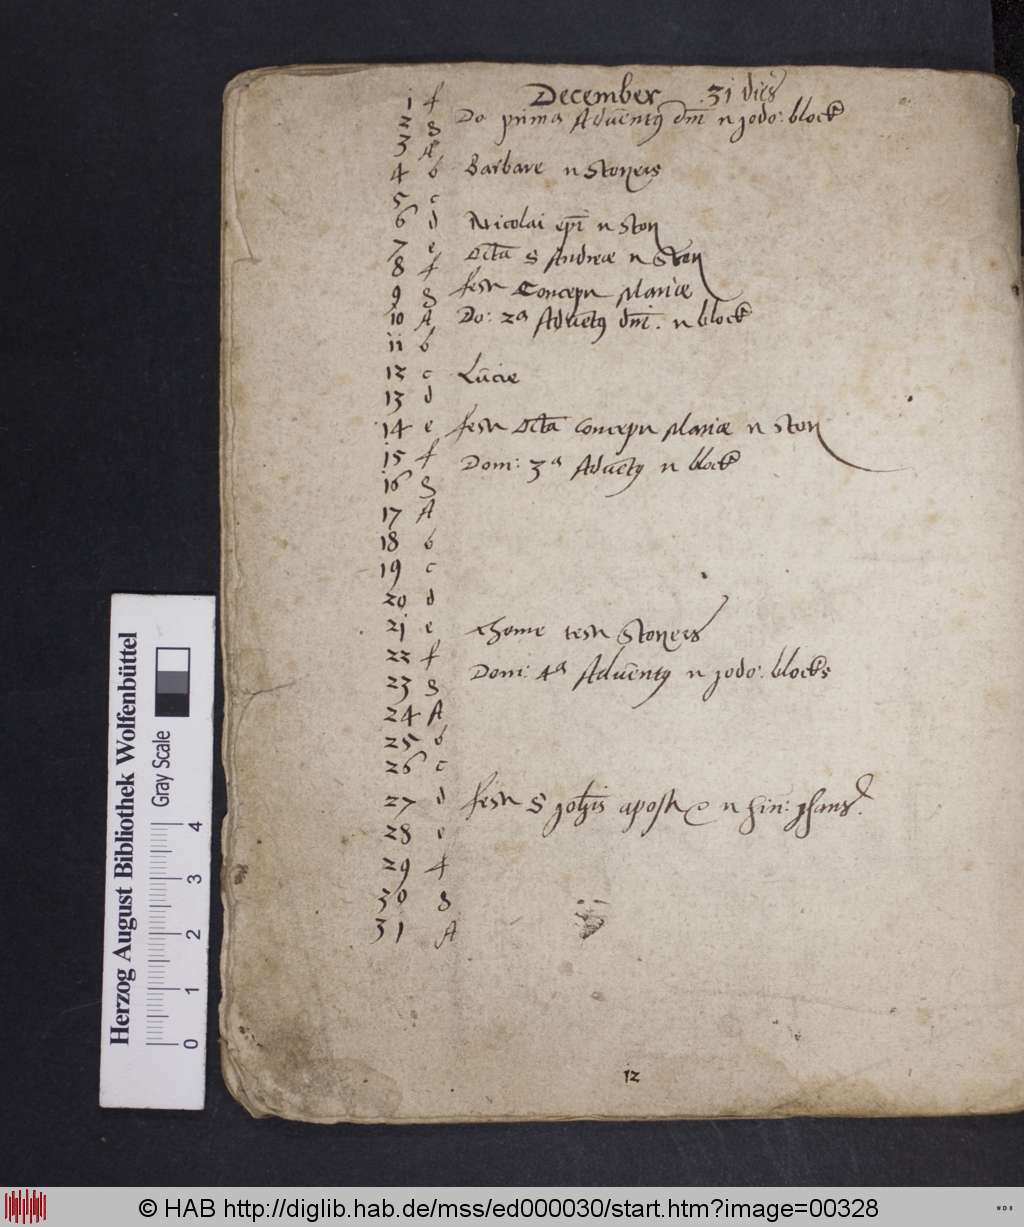 December 31 dies
1 f
2 g Do prima Adventq dm n jodo: block
3 A
4 b Barbare n Stoners
5 c
6 d Nicolai epi n ston
7 e Octa S Andreæ n Ston
8 f
9 g festu Conceptu Mariæ
10 A Do: 2a Advetq dm. n block
11 b
12 c Luciæ
13 d
14 e festu Octa Conceptu Mariæ n Ston
15 f
16 g Dom: 3a Advetq n block
17 A
18 b
19 c
20 d
21 e Thome festu Stoners
22 f
23 g Dom: 4a Adventq n jodo: blocks
24 A
25 b
26 c
27 d festu S Johis apostu n
28 e
29 f
30 g
31 A
12
Herzog August Bibliothek Wolfenbüttel
Gray Scale
0 1 2 3 4
© HAB http://diglib.hab.de/mss/ed000030/start.htm?image=00328